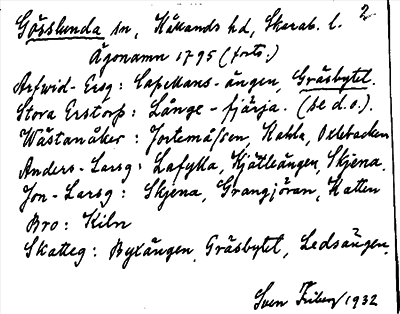 Gösslunda sn, Kållands hd, Skarab. l. 2
Ägonamn 1795 (forts.)
Arfwid-Ersg: Capellans-ängen, Gräsbytet.
Stora Erstorp: Långe-fjärja. (se d.o.).
Wästanåker: Jortemåssen, Kahla, Oxlebacken
Anders-Larsg: Lafylla, Kjätleängen, Skjena.
Jon-Larsg: Skjena, Grangjöran, Katten
Bro: Kiln
Skatteg: Byxängen, Gräsbytet, Ledsängen.
Sven Friberg 1932